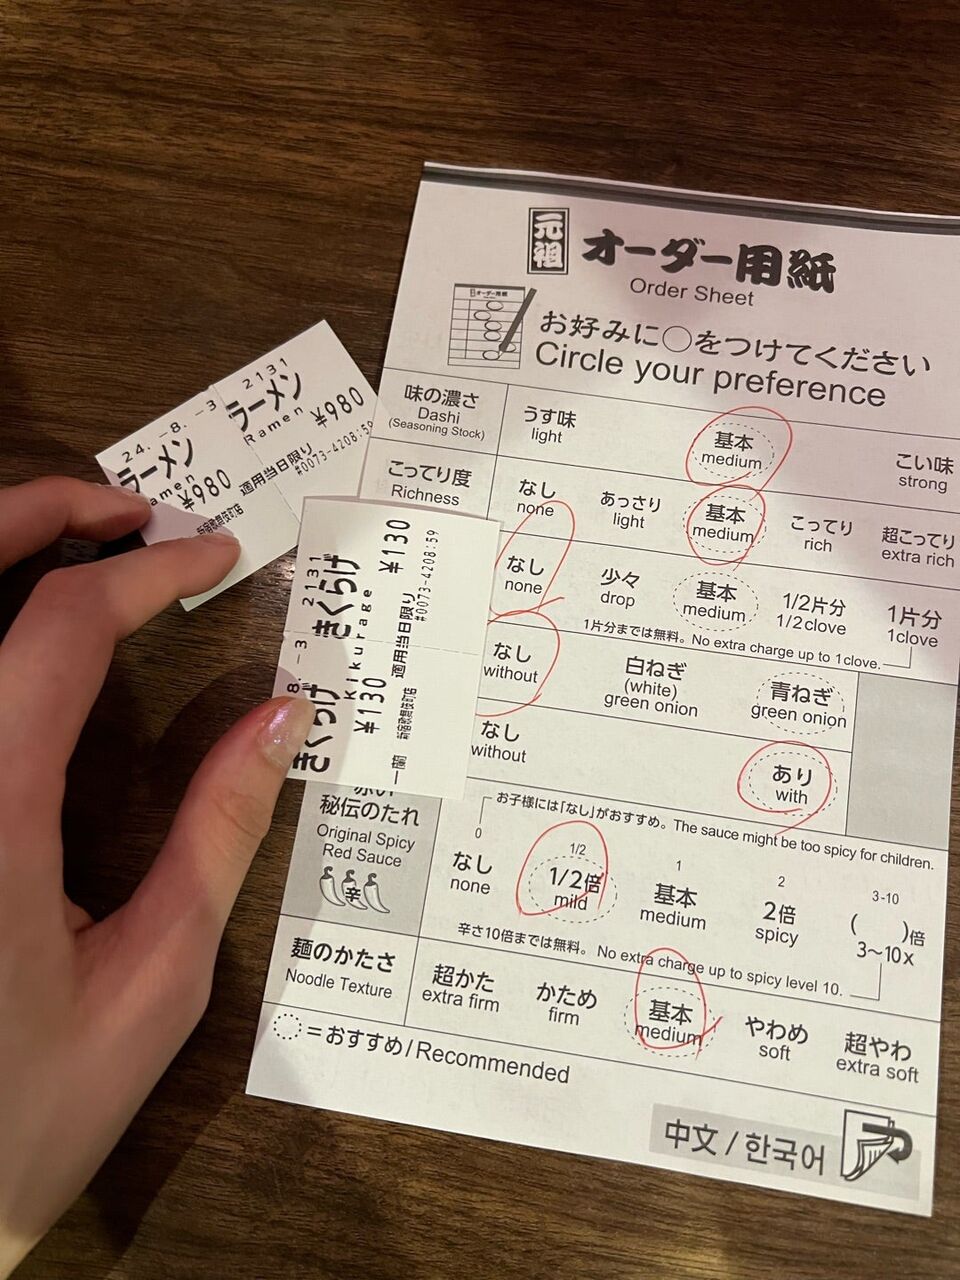 元祖
オーダー用紙
Order Sheet
お好みに○をつけてください
Circle your preference
味の濃さ
Dashi
(Seasoning Stock)
うす味
light
基本
medium
こい味
strong
こってり度
Richness
なし
none
あっさり
light
基本
medium
こってり
rich
超こってり
extra rich
なし
none
少々
drop
基本
medium
1/2片分
1/2clove
1片分
1clove
1片分までは無料。No extra charge up to 1clove.
なし
without
白ねぎ
(white)
green onion
青ねぎ
green onion
なし
without
あり
with
秘伝のたれ
Original Spicy
Red Sauce
辛
お子様には「なし」がおすすめ。The sauce might be too spicy for children.
0
なし
none
1/2
1/2倍
mild
1
基本
medium
2
2倍
spicy
3-10
(　　)倍
3~10x
辛さ10倍までは無料。No extra charge up to spicy level 10.
麺のかたさ
Noodle Texture
超かた
extra firm
かため
firm
基本
medium
やわめ
soft
超やわ
extra soft
=おすすめ/Recommended
中文/한국어
24.-8.-3
2131
ラーメン
ラーメン
Ramen
¥980
¥980
適用当日限り
#0073-4208:59
新宿歌舞伎町店
8.-3
2131
きくらげ
きくらげ
Kikurage
¥130
¥130
適用当日限り
#0073-4208:59
一蘭
新宿歌舞伎町店